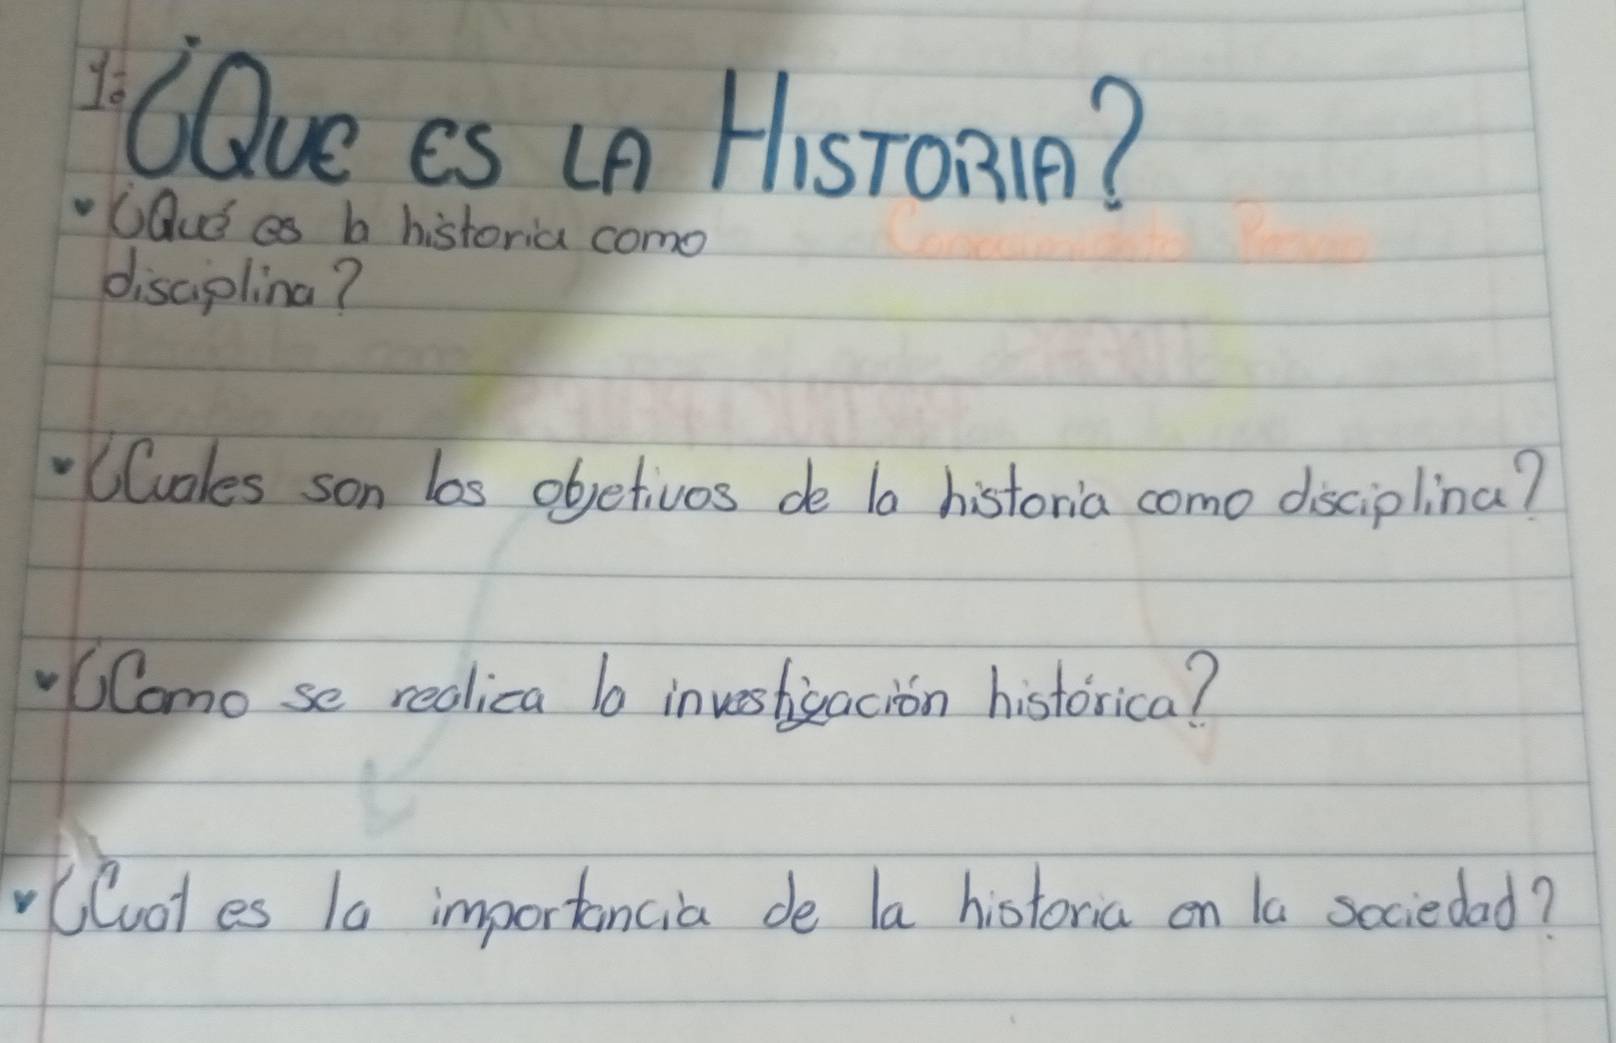 1: ¿QUE ES LA HISTORIA?
• ¿Qué es la historia como
disciplina?
• ¿Cuales son los objetivos de la historia como disciplina?
• ¿Como se realiza la investigación histórica?
• ¿Cual es la importancia de la historia en la sociedad?